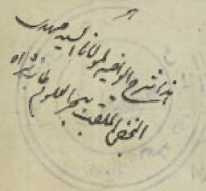 هذا شرح الوافية لمولانا السيد مهدي
النجفي الملقب ببحر العلوم طاب ثراه